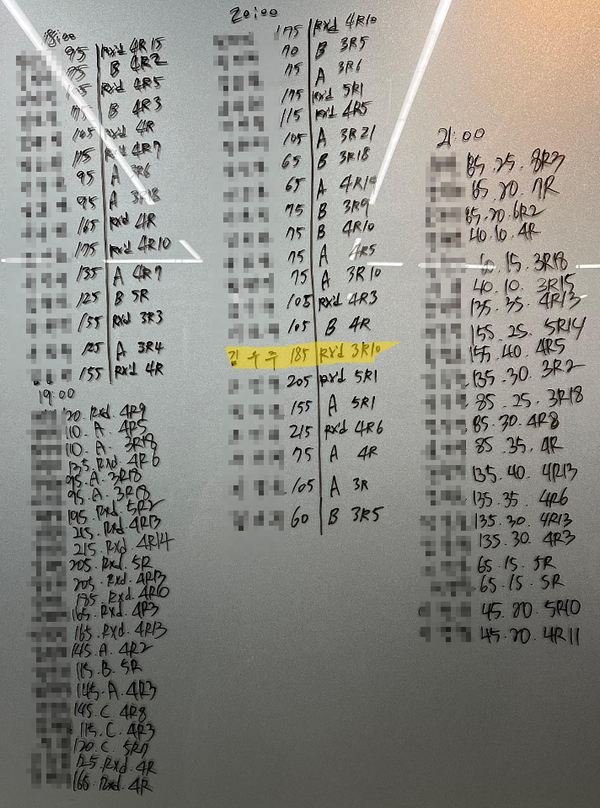 18:00
95 Rxd 4R15
75 B 4R2
105 Rxd 4R5
75 B 4R3
105 Rxd 4R
115 Rxd 4R7
95 A 3R6
95 A 3R18
165 Rxd 4R
175 Rxd 4R10
135 A 4R7
125 B 5R
155 Rxd 3R3
125 A 3R4
155 Rxd 4R
19:00
120. Rxd. 4R9
110. A. 4R5
110. A. 3R18
135. Rxd. 4R6
95. A. 3R18
95. A. 3R18
195. Rxd. 5R2
215. Rxd. 4R13
215. Rxd. 4R14
205. Rxd. 5R
205. Rxd. 4R13
185. Rxd. 4R10
165. Rxd. 4R3
165. Rxd. 4R13
145. A. 4R2
115. B. 5R
145. A. 4R3
145. C. 4R8
115. C. 4R3
120. C. 5R7
125. Rxd. 4R
165. Rxd. 4R
20:00
175 Rxd 4R10
70 B 3R5
75 A 3R6
175 Rxd 5R1
115 Rxd 4R5
105 A 3R21
65 B 3R18
65 A
75 B 3R9
75 B 4R10
75 A 4R5
75 A 3R10
105 Rxd 4R3
105 B 4R
김우주 185 Rxd 3R10
205 Rxd 5R1
155 A 5R1
215 Rxd 4R6
75 A 4R
105 A 3R
60 B 3R5
21:00
85. 25. 8R3
65. 20. 7R
65. 20. 6R2
40. 10. 4R
60. 15. 3R18
40. 10. 3R15
135. 35. 4R13
155. 25. 5R14
155. 40. 4R5
135. 30. 3R2
85. 25. 3R18
85. 30. 4R8
85. 35. 4R
135. 40. 4R13
135. 35. 4R6
135. 30. 4R13
135. 30. 4R3
65. 15. 5R
65. 15. 5R
45. 20. 5R10
45. 20. 4R11